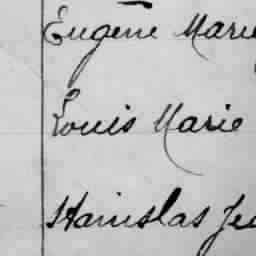 Eugène Marie
Louis Marie
Stanislas